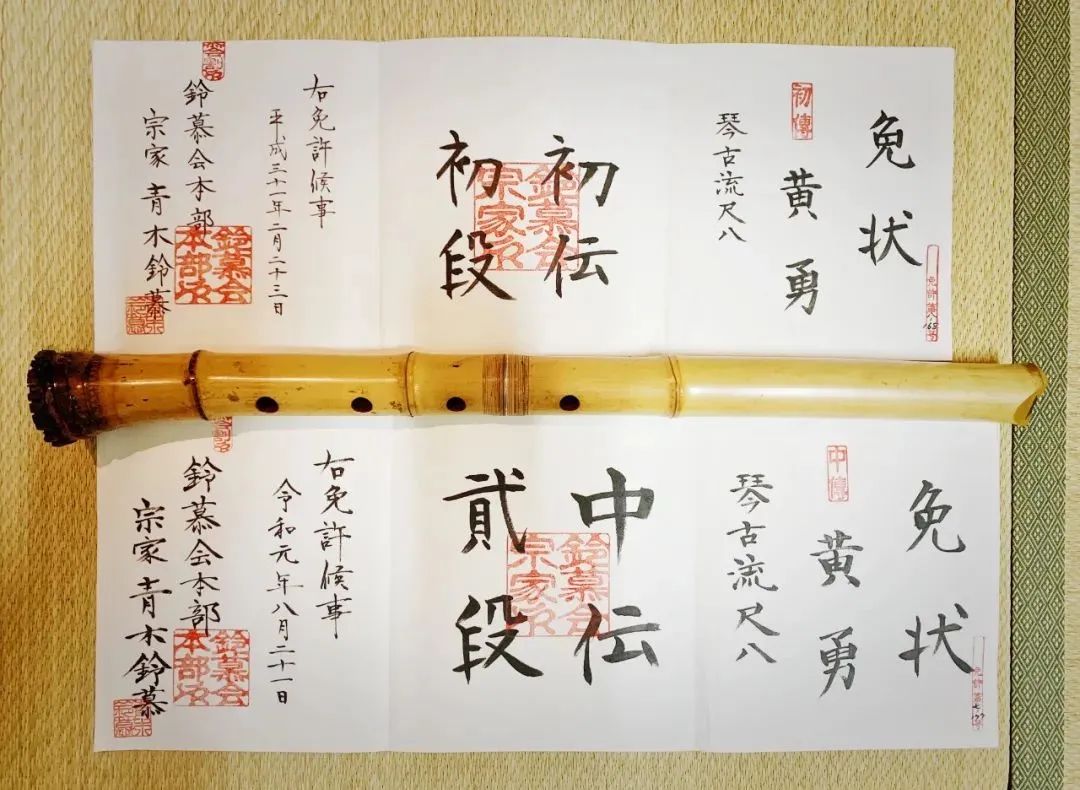 免状
黄勇
初傳
琴古流尺八
初伝
初段
鈴慕会宗家印
右免許候事
平成三十一年二月二十三日
鈴慕会本部
宗家 青木鈴慕
鈴慕会本部印
免状
黄勇
中傳
琴古流尺八
中伝
貳段
鈴慕会宗家印
右免許候事
令和元年八月二十一日
鈴慕会本部
宗家 青木鈴慕
鈴慕会本部印